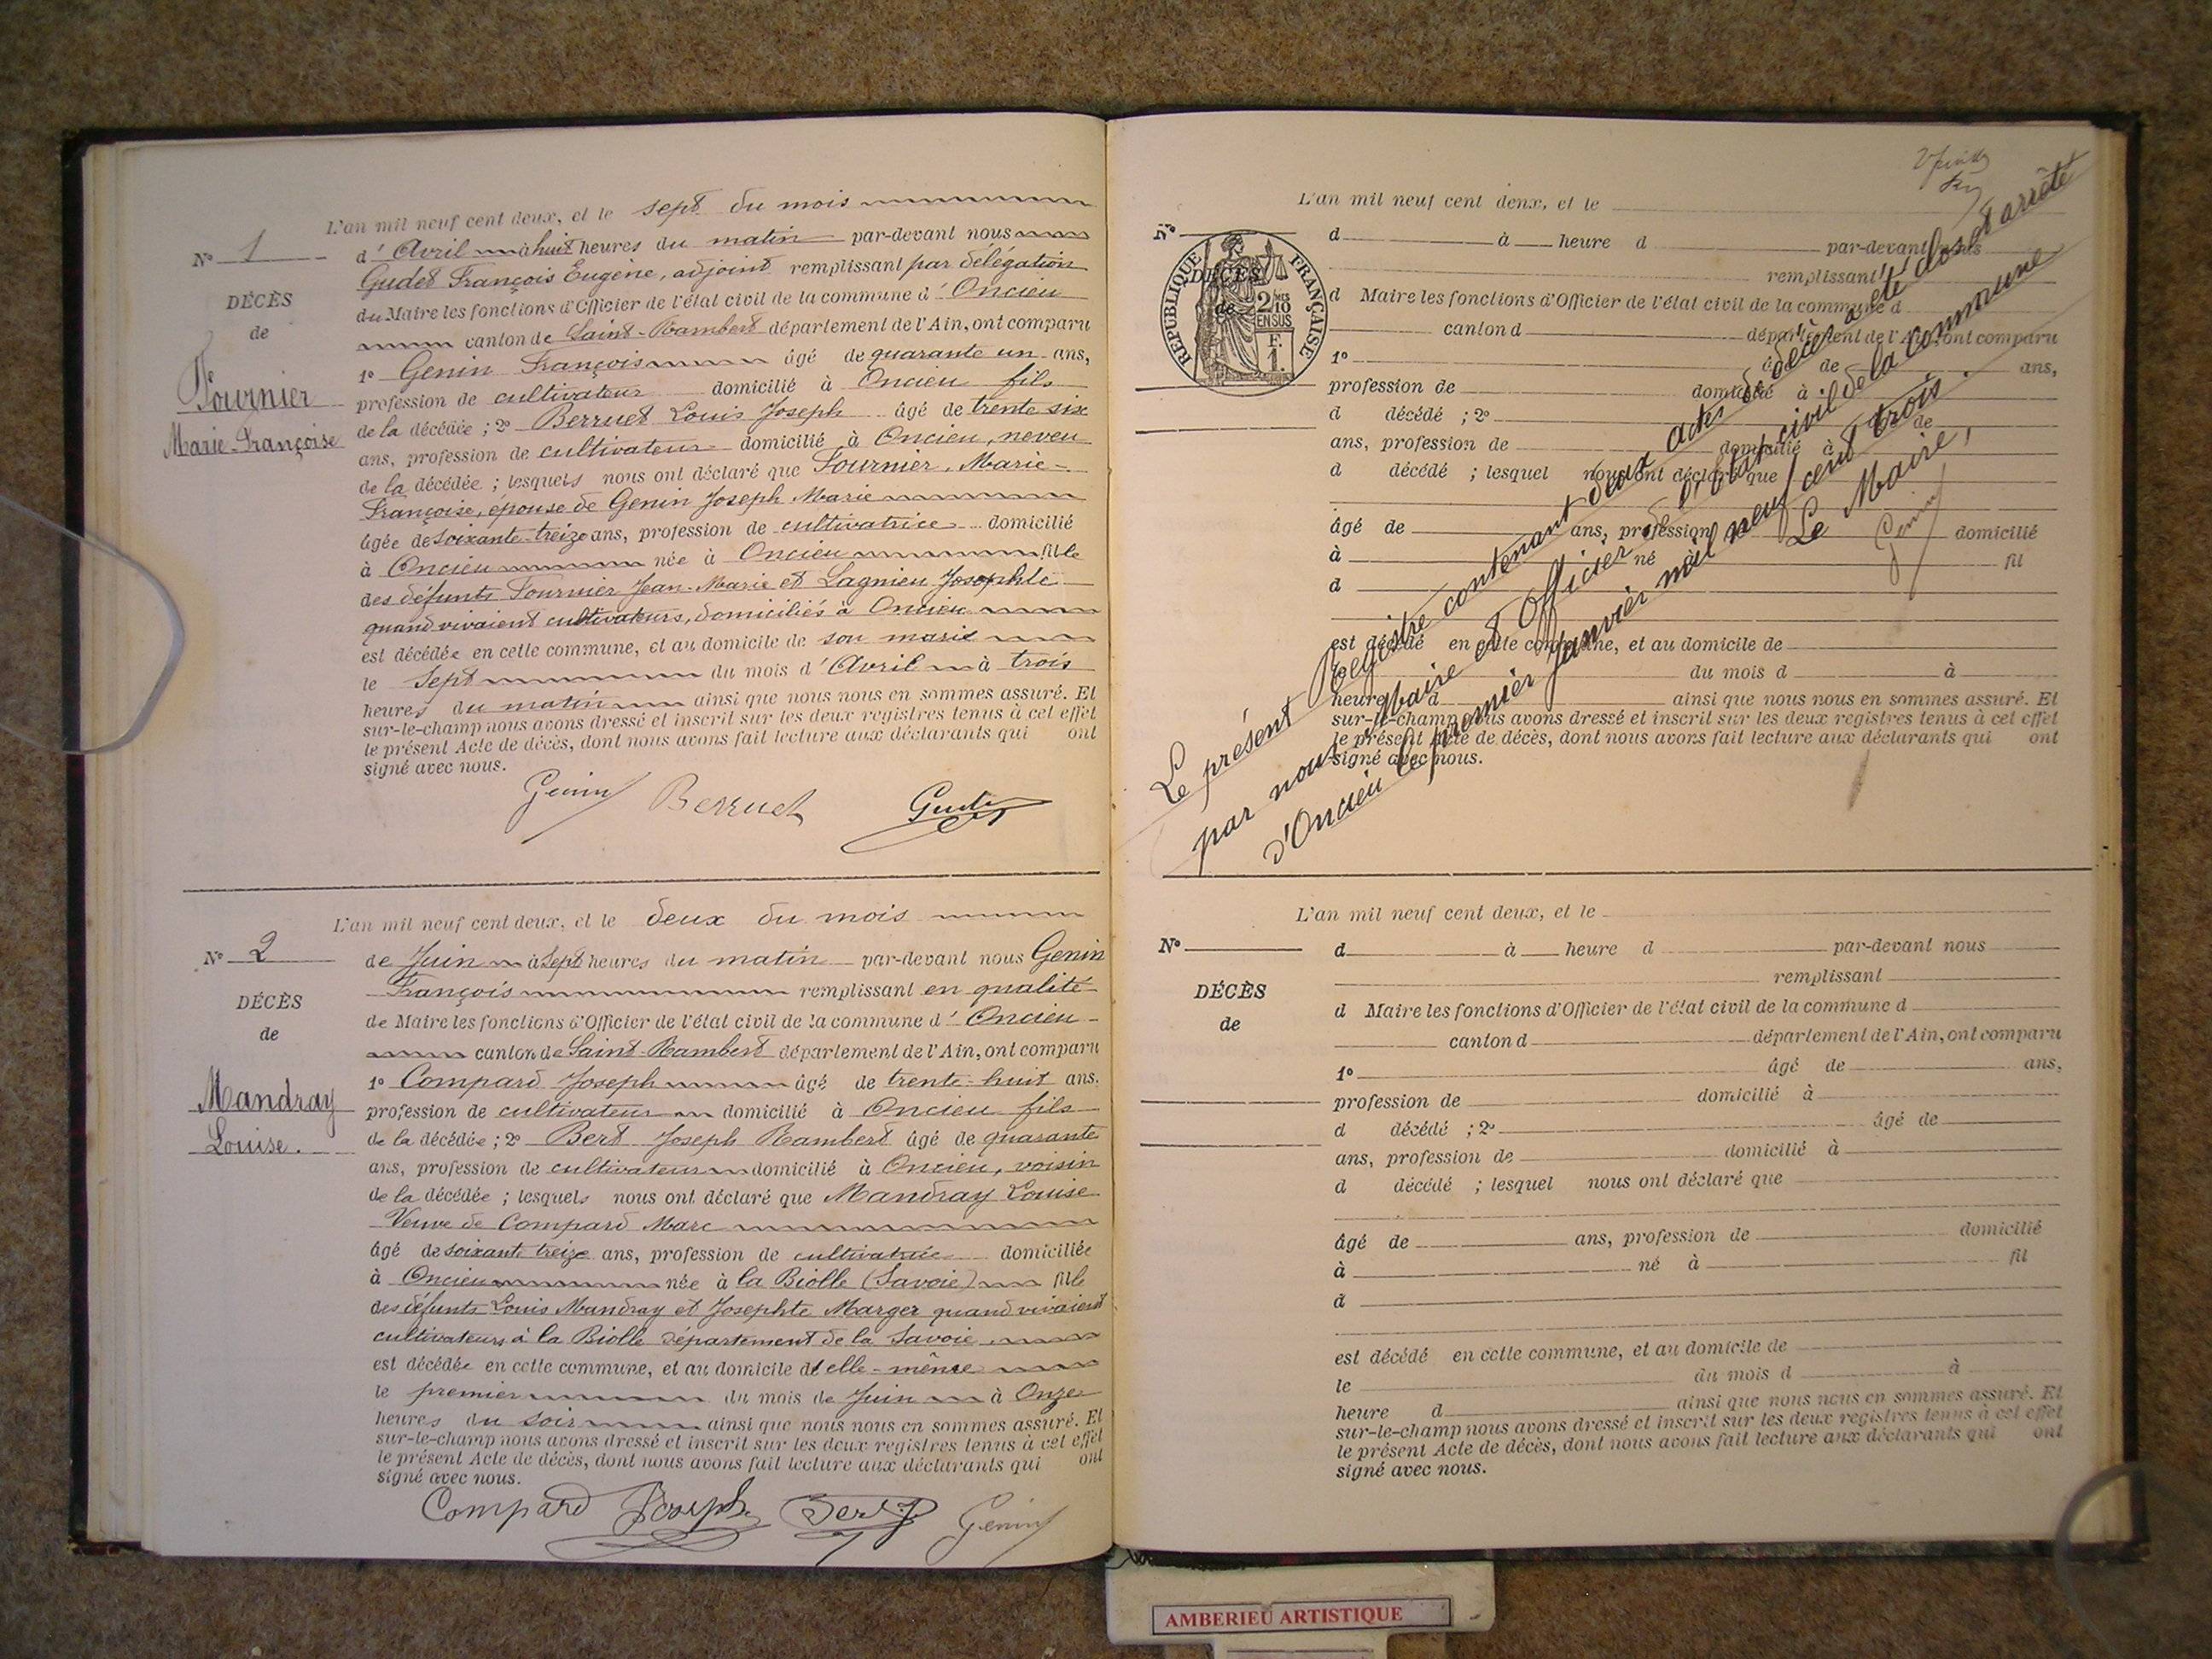 L'an mil neuf cent deux, et le sept du mois
N° 1 d'Avril à huit heures du matin par-devant nous
Gudet François Eugène, adjoint remplissant par délégation
DÉCÈS
du Maire les fonctions d'Officier de l'état civil de la commune d'Oncieu
de
canton de Saint-Rambert département de l'Ain, ont comparu
1° Genin François âgé de quarante un ans,
Fournier
profession de cultivateur domicilié à Oncieu fils
Marie-Françoise
de la décédée ; 2° Berruet Louis Joseph âgé de trente six
ans, profession de cultivateur domicilié à Oncieu, neveu
de la décédée ; lesquels nous ont déclaré que Fournier, Marie-
Françoise, épouse de Genin Joseph Marie
âgée de soixante-treize ans, profession de cultivatrice domicilié
à Oncieu née à Oncieu fille
des défunts Fournier Jean-Marie et Lagnieu Josephte
quand vivaient cultivateurs, domiciliés à Oncieu
est décédée en cette commune, et au domicile de son marie
le sept du mois d'Avril à trois
heures du matin ainsi que nous nous en sommes assuré. Et
sur-le-champ nous avons dressé et inscrit sur les deux registres tenus à cet effet
le présent Acte de décès, dont nous avons fait lecture aux déclarants qui ont
signé avec nous.
Genin Berruet Gudet
L'an mil neuf cent deux, et le deux du mois
N° 2 de Juin à Sept heures du matin par-devant nous Genin
François remplissant en qualité
DÉCÈS
de Maire les fonctions d'Officier de l'état civil de la commune d'Oncieu
de
canton de Saint-Rambert département de l'Ain, ont comparu
1° Compard Joseph âgé de trente-huit ans.
Mandray
profession de cultivateur domicilié à Oncieu fils
Louise.
de la décédée ; 2° Bert Joseph Rambert âgé de quarante
ans, profession de cultivateur domicilié à Oncieu, voisin
de la décédée ; lesquels nous ont déclaré que Mandray Louise
Veuve de Compard Marc
âgé de soixante treize ans, profession de cultivatrice domiciliée
à Oncieu née à la Biolle (Savoie) fille
des défunts Louis Mandray et Josephte Marger quand vivaient
cultivateurs à la Biolle département de la Savoie
est décédée en cette commune, et au domicile d'elle-même
le premier du mois de Juin à Onze
heures du soir ainsi que nous nous en sommes assuré. Et
sur-le-champ nous avons dressé et inscrit sur les deux registres tenus à cet effet
le présent Acte de décès, dont nous avons fait lecture aux déclarants qui ont
signé avec nous.
Compard Joseph Bert J Genin
L'an mil neuf cent deux, et le
N° d à heure d par-devant nous
remplissant
RÉPUBLIQUE FRANÇAISE
2/10 EN SUS
F. 1.
DÉCÈS
de
d Maire les fonctions d'Officier de l'état civil de la commune d
canton d département de l'Ain, ont comparu
1° âgé de ans,
profession de domicilié à
d décédé ; 2° âgé de
ans, profession de domicilié à
d décédé ; lesquel nous ont déclaré que
âgé de ans, profession de domicilié
à né à fil
d
est décédé en cette commune, et au domicile de
le du mois d à
heure d ainsi que nous nous en sommes assuré. Et
sur-le-champ nous avons dressé et inscrit sur les deux registres tenus à cet effet
le présent Acte de décès, dont nous avons fait lecture aux déclarants qui ont
signé avec nous.
Le présent Registre contenant deux actes de décès a été clos et arrêté
par nous Maire et Officier de l'état civil de la commune
d'Oncieu le premier Janvier mil neuf cent trois.
Le Maire,
Genin
L'an mil neuf cent deux, et le
N° d à heure d par-devant nous
remplissant
DÉCÈS
d Maire les fonctions d'Officier de l'état civil de la commune d
de
canton d département de l'Ain, ont comparu
1° âgé de ans,
profession de domicilié à
d décédé ; 2° âgé de
ans, profession de domicilié à
d décédé ; lesquel nous ont déclaré que
âgé de ans, profession de domicilié
à né à fil
d
est décédé en cette commune, et au domicile de
le du mois d à
heure d ainsi que nous nous en sommes assuré. Et
sur-le-champ nous avons dressé et inscrit sur les deux registres tenus à cet effet
le présent Acte de décès, dont nous avons fait lecture aux déclarants qui ont
signé avec nous.
AMBERIEU ARTISTIQUE